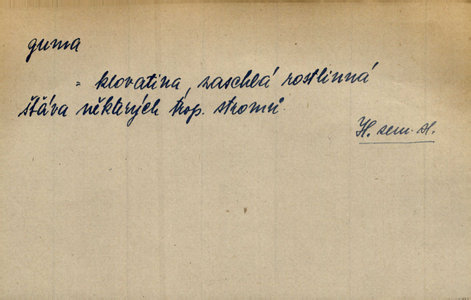 guma
= klovatina, zaschlá rostlinná
šťáva některých trop. stromů.
H. sem. sl.